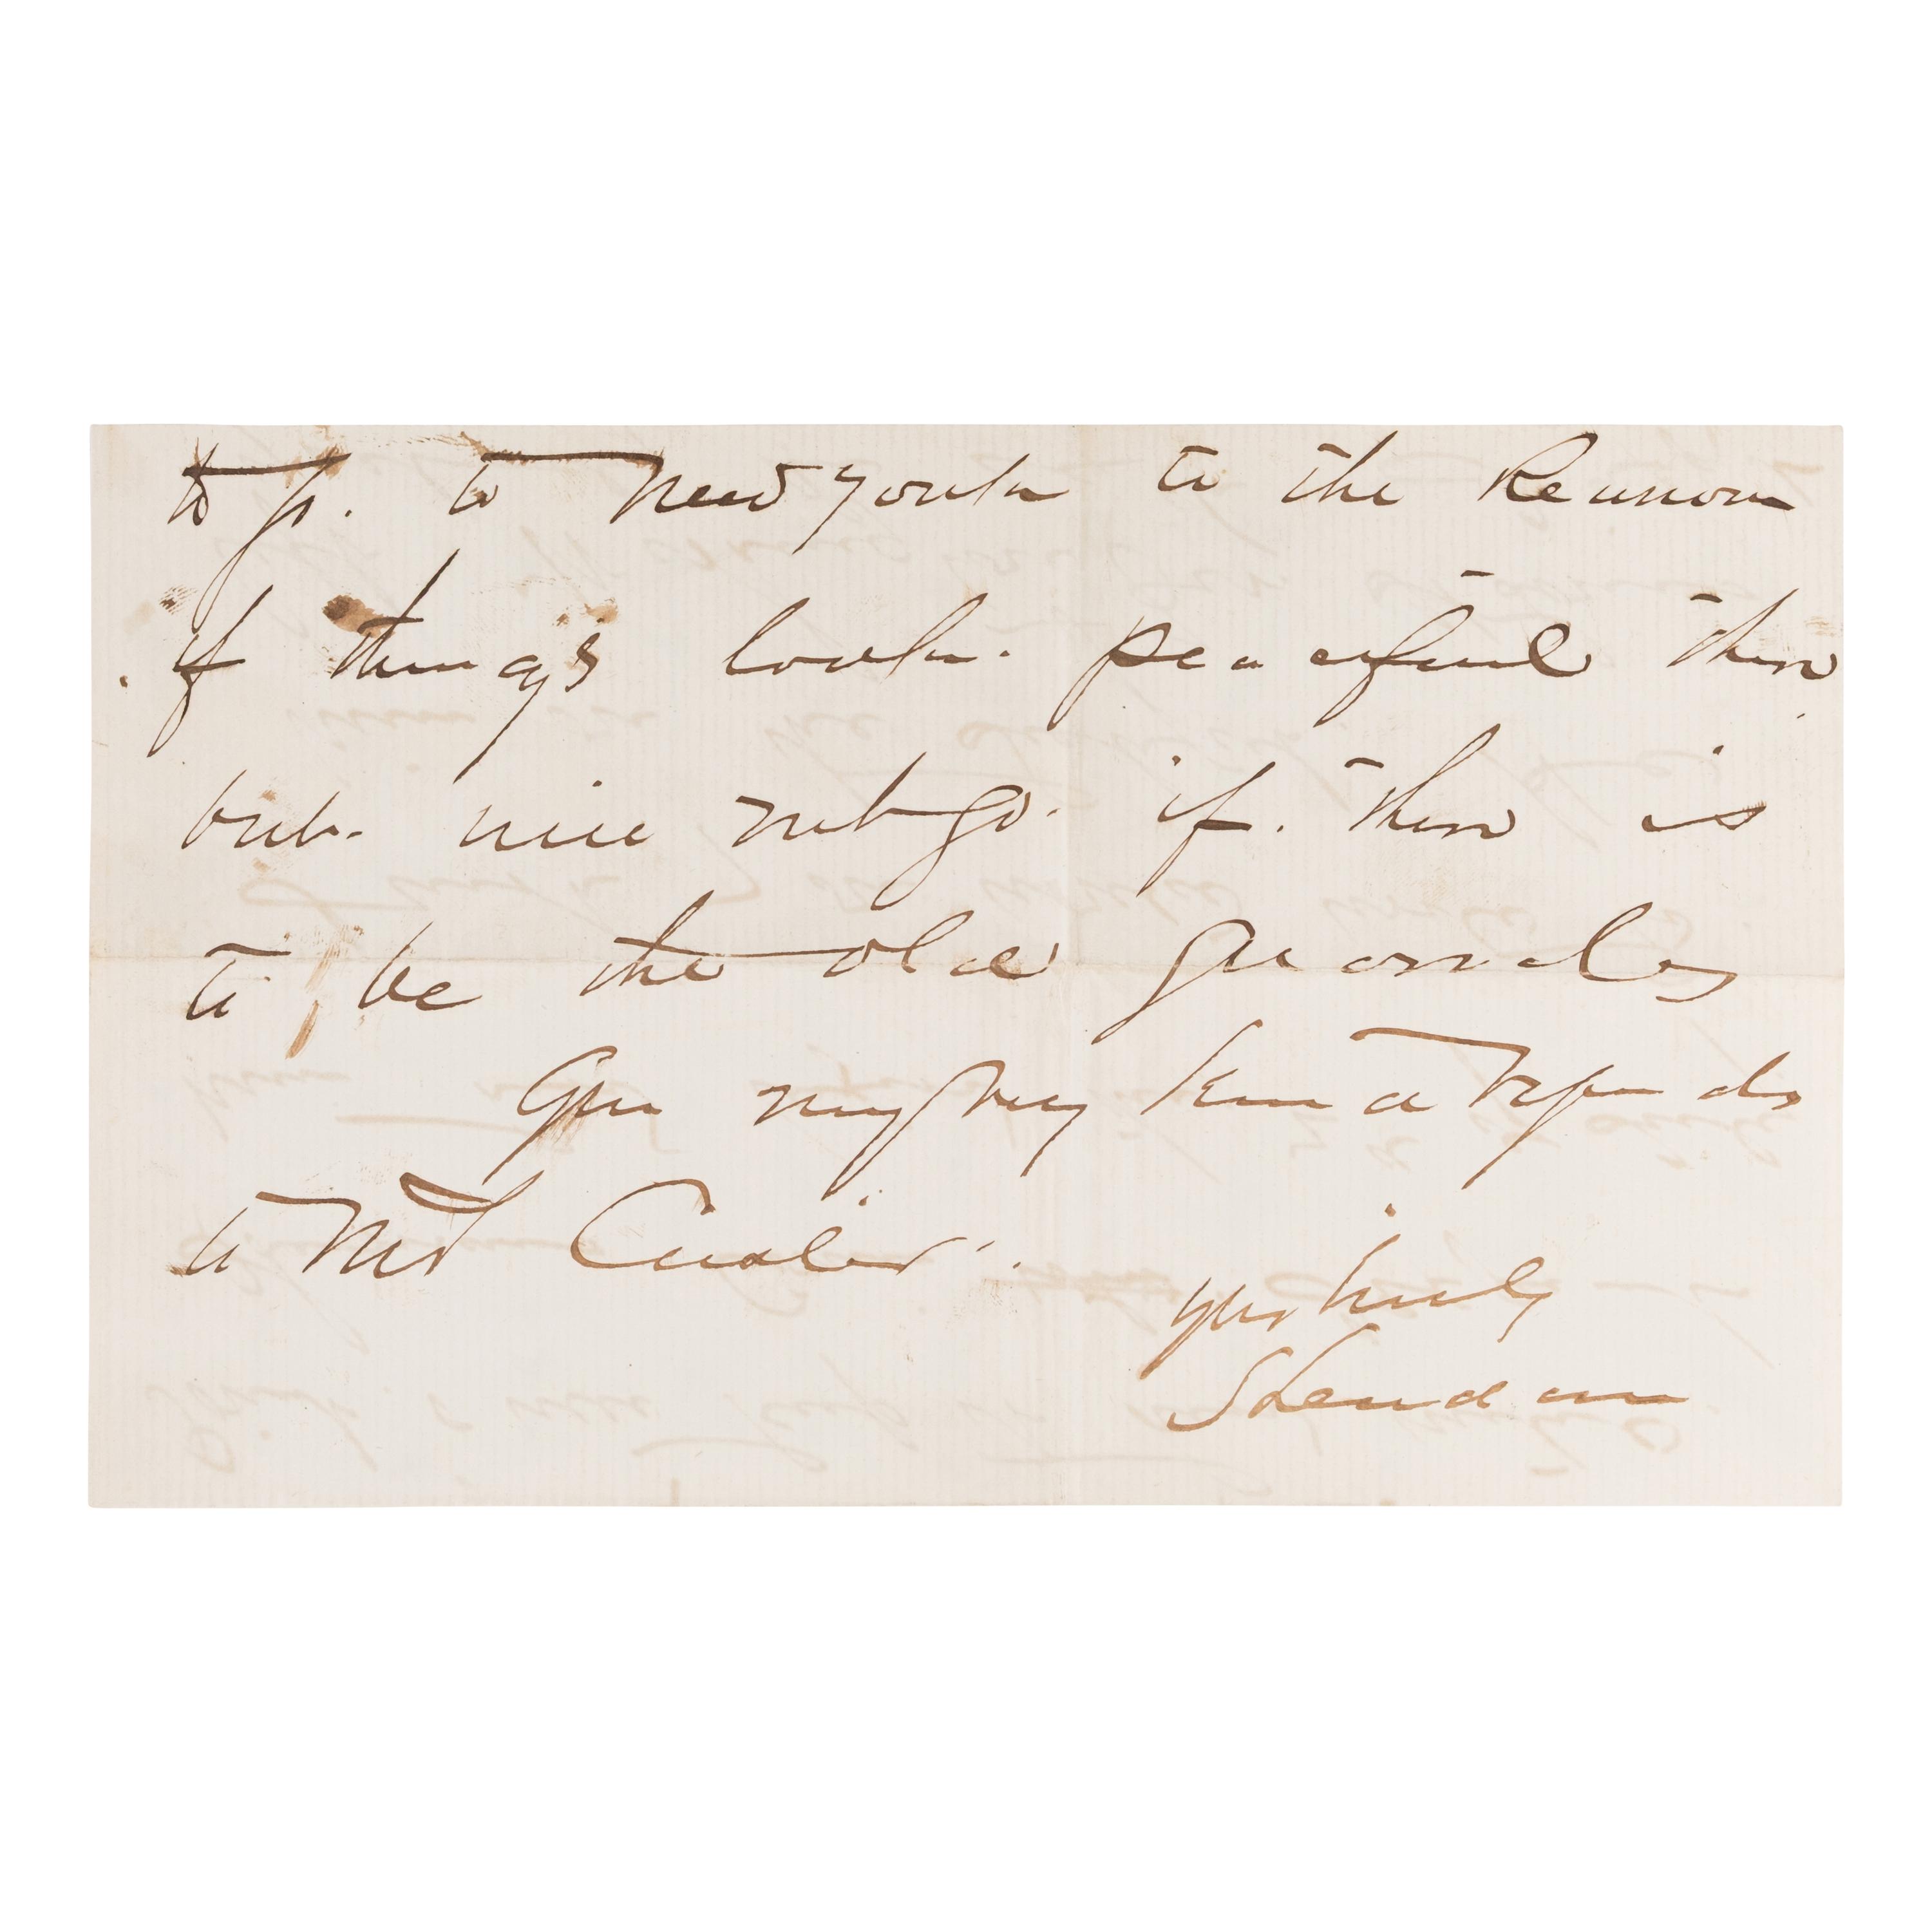 to go. to New York to the Reunion
if things look. peaceful then
but will not go. if. there is
to be the old quarrels
Give my very kind regards
to Mrs Custer.
yours truly
Sheridan